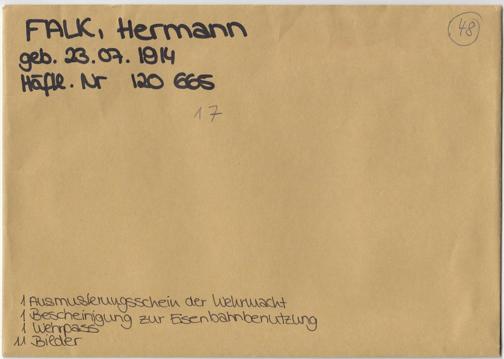 FALK, Hermann
48
geb. 23.07.1914
Häftl. Nr 120 665
17
1 Ausmusterungsschein der Wehrmacht
1 Bescheinigung zur Eisenbahnbenutzung
1 Wehrpass
11 Bilder